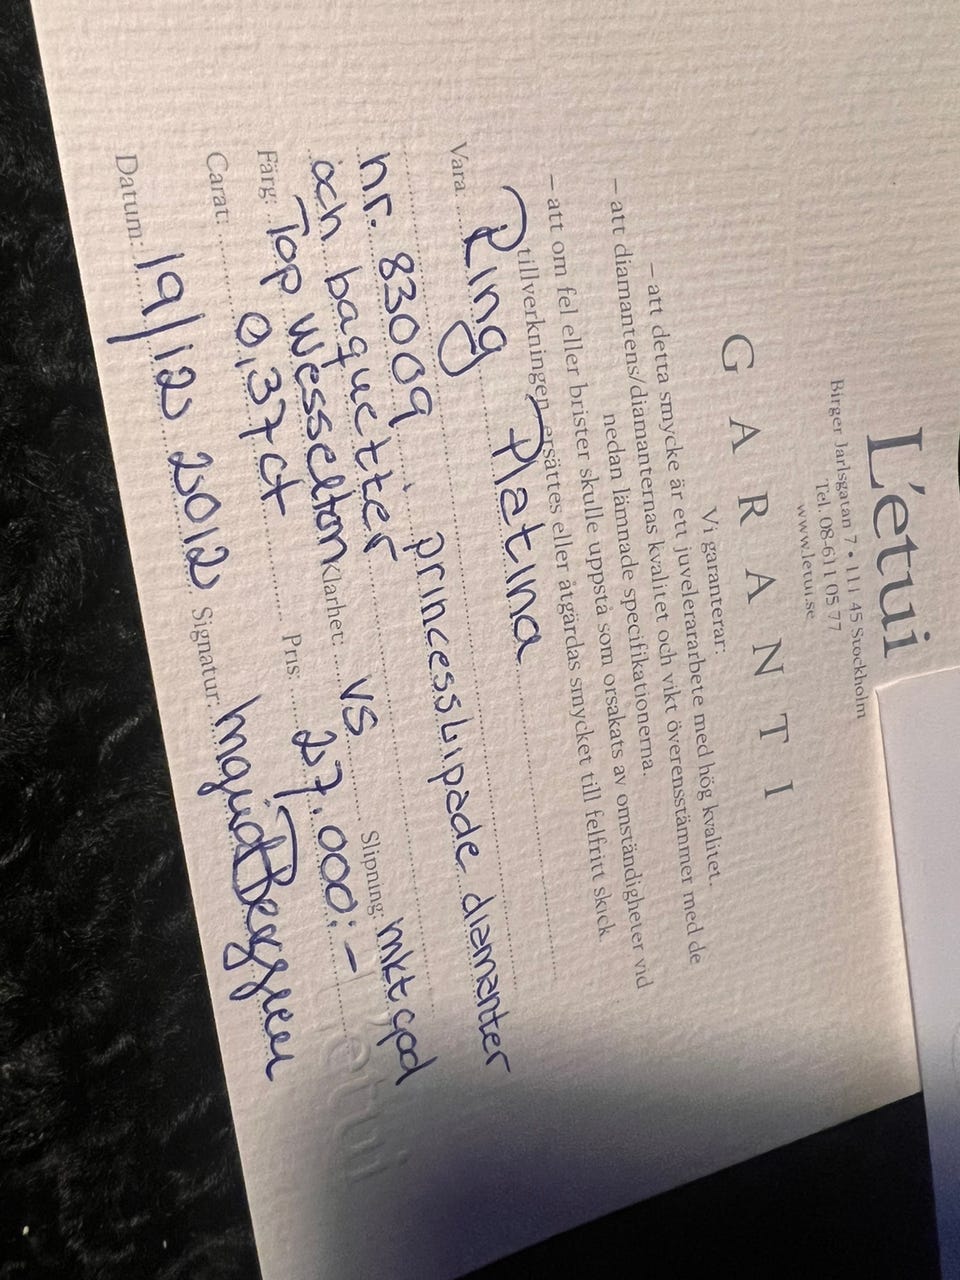 L'etui
Birger Jarlsgatan 7 • 111 45 Stockholm
Tel. 08-611 05 77
www.letui.se
GARANTI
Vi garanterar:
– att detta smycke är ett juvelerararbete med hög kvalitet.
– att diamantens/diamanternas kvalitet och vikt överensstämmer med de
nedan lämmade specifikationerna.
– att om fel eller brister skulle uppstå som orsakats av omständigheter vid
tillverkningen ersättes eller åtgärdas smycket till felfritt skick.
Vara: Ring Platina
nr. 83009. princesslipade diamanter
och baquetter
Färg: Top Wesselton Klarhet: VS Slipning: mkt god
Carat: 0,37 ct Pris: 27.000:-
Datum: 19/12 2012 Signatur: Ingrid Berggren
etui